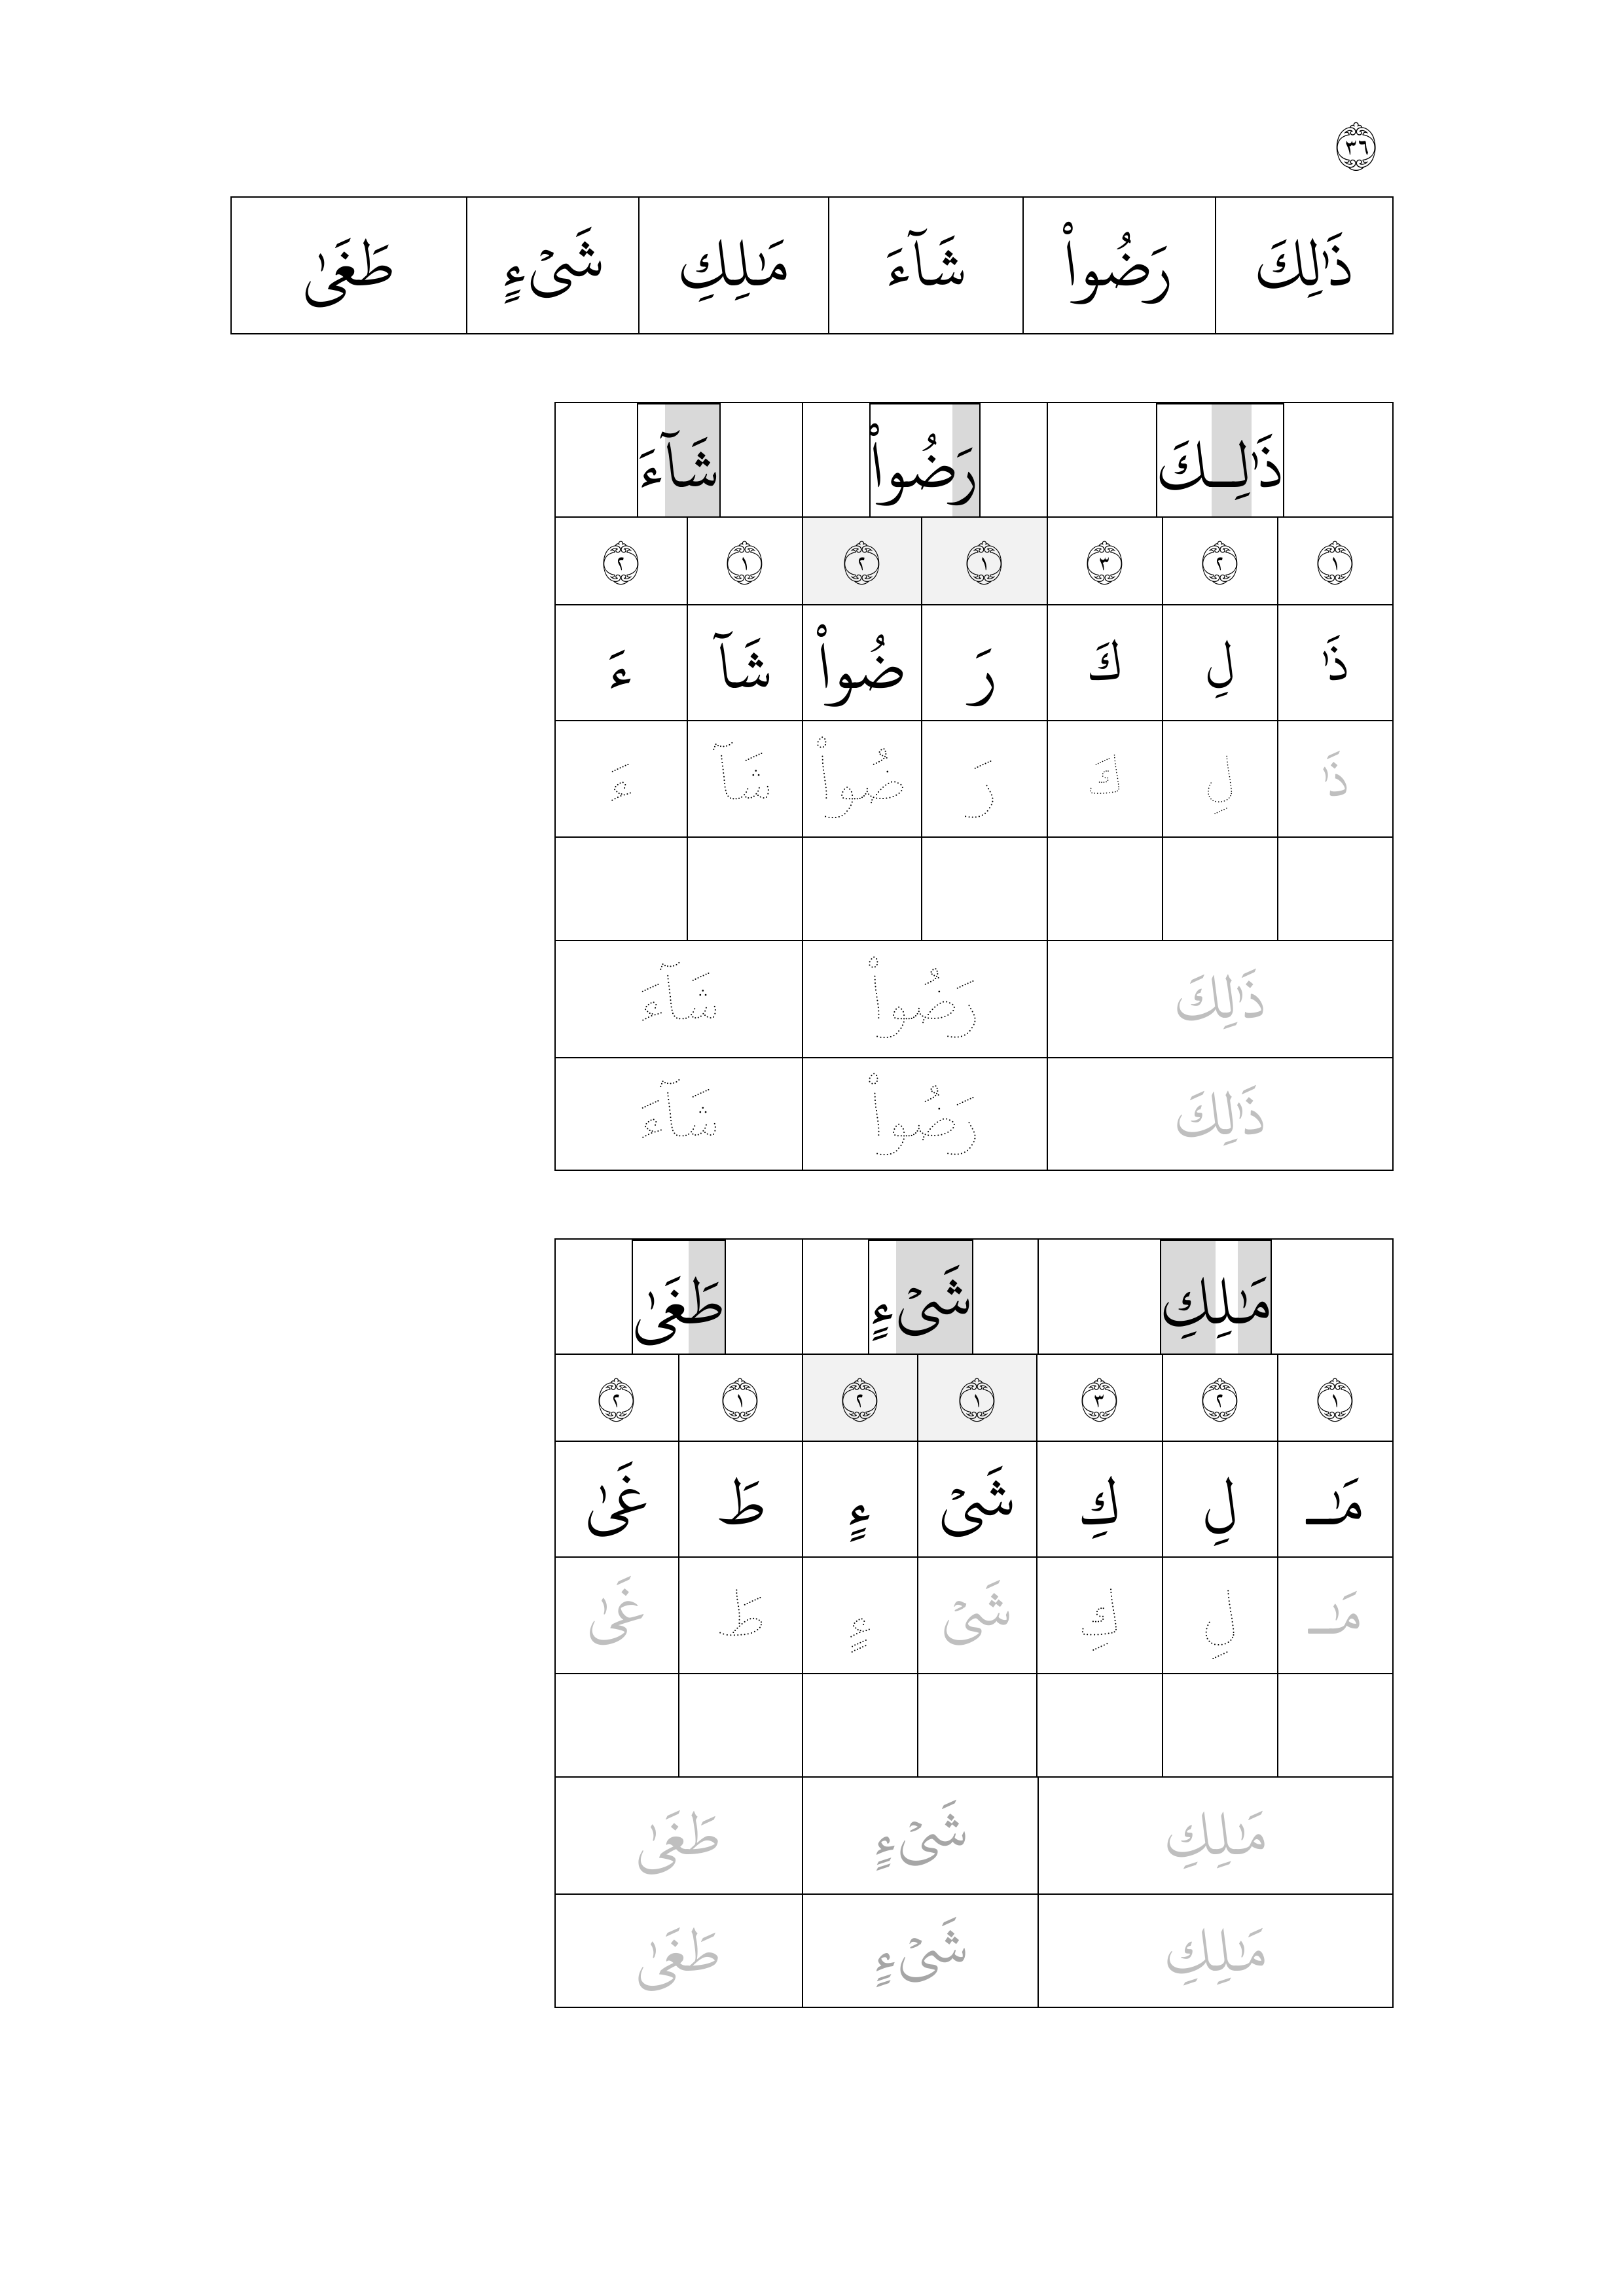 ٣٦
ذَٰلِكَ رَضُوا۟ شَآءَ مَـٰلِكِ شَىْءٍ طَغَىٰ
ذَٰلِـكَ رَضُوا۟ شَآءَ
١ ٢ ٣ ١ ٢ ١ ٢
ذَٰ لِ كَ رَ ضُوا۟ شَآ ءَ
ذَٰ لِ كَ رَ ضُوا۟ شَآ ءَ
ذَٰلِكَ رَضُوا۟ شَآءَ
ذَٰلِكَ رَضُوا۟ شَآءَ
مَـٰلِكِ شَىْءٍ طَغَىٰ
١ ٢ ٣ ١ ٢ ١ ٢
مَـٰـ لِ كِ شَىْ ءٍ طَ غَىٰ
مَـٰـ لِ كِ شَىْ ءٍ طَ غَىٰ
مَـٰلِكِ شَىْءٍ طَغَىٰ
مَـٰلِكِ شَىْءٍ طَغَىٰ